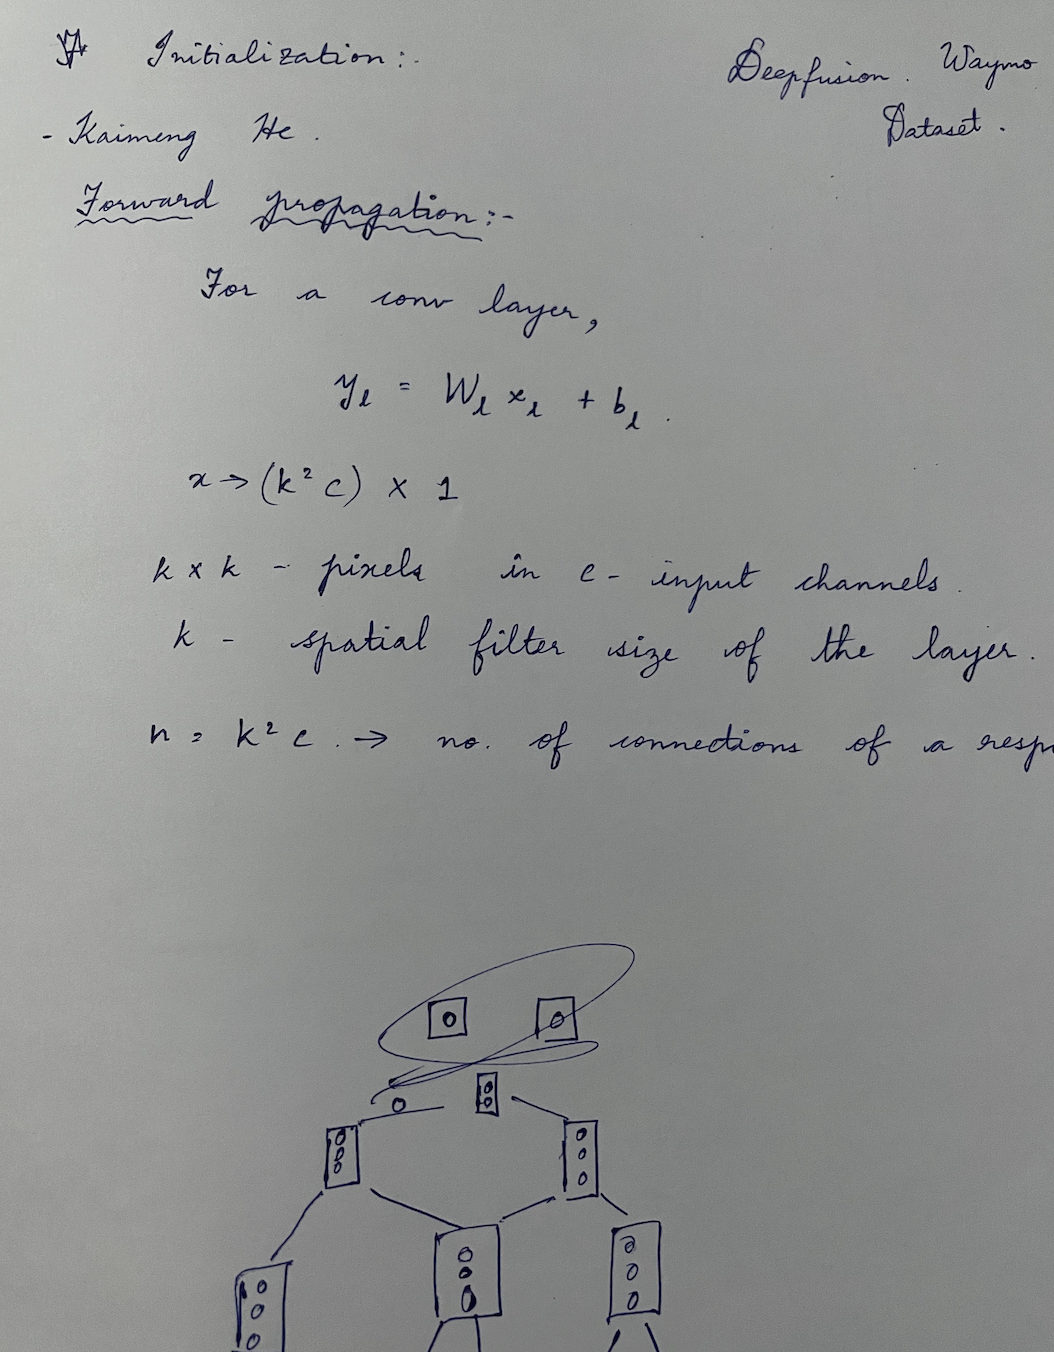 Initialization:-
Deepfusion. Waymo
Dataset.
- Kaimeng He.
Forward propagation:-
For a conv layer,
yₗ = Wₗ xₗ + bₗ.
x → (k² c) × 1
k × k - pixels in c - input channels.
k - spatial filter size of the layer.
n = k² c. → no. of connections of a resp